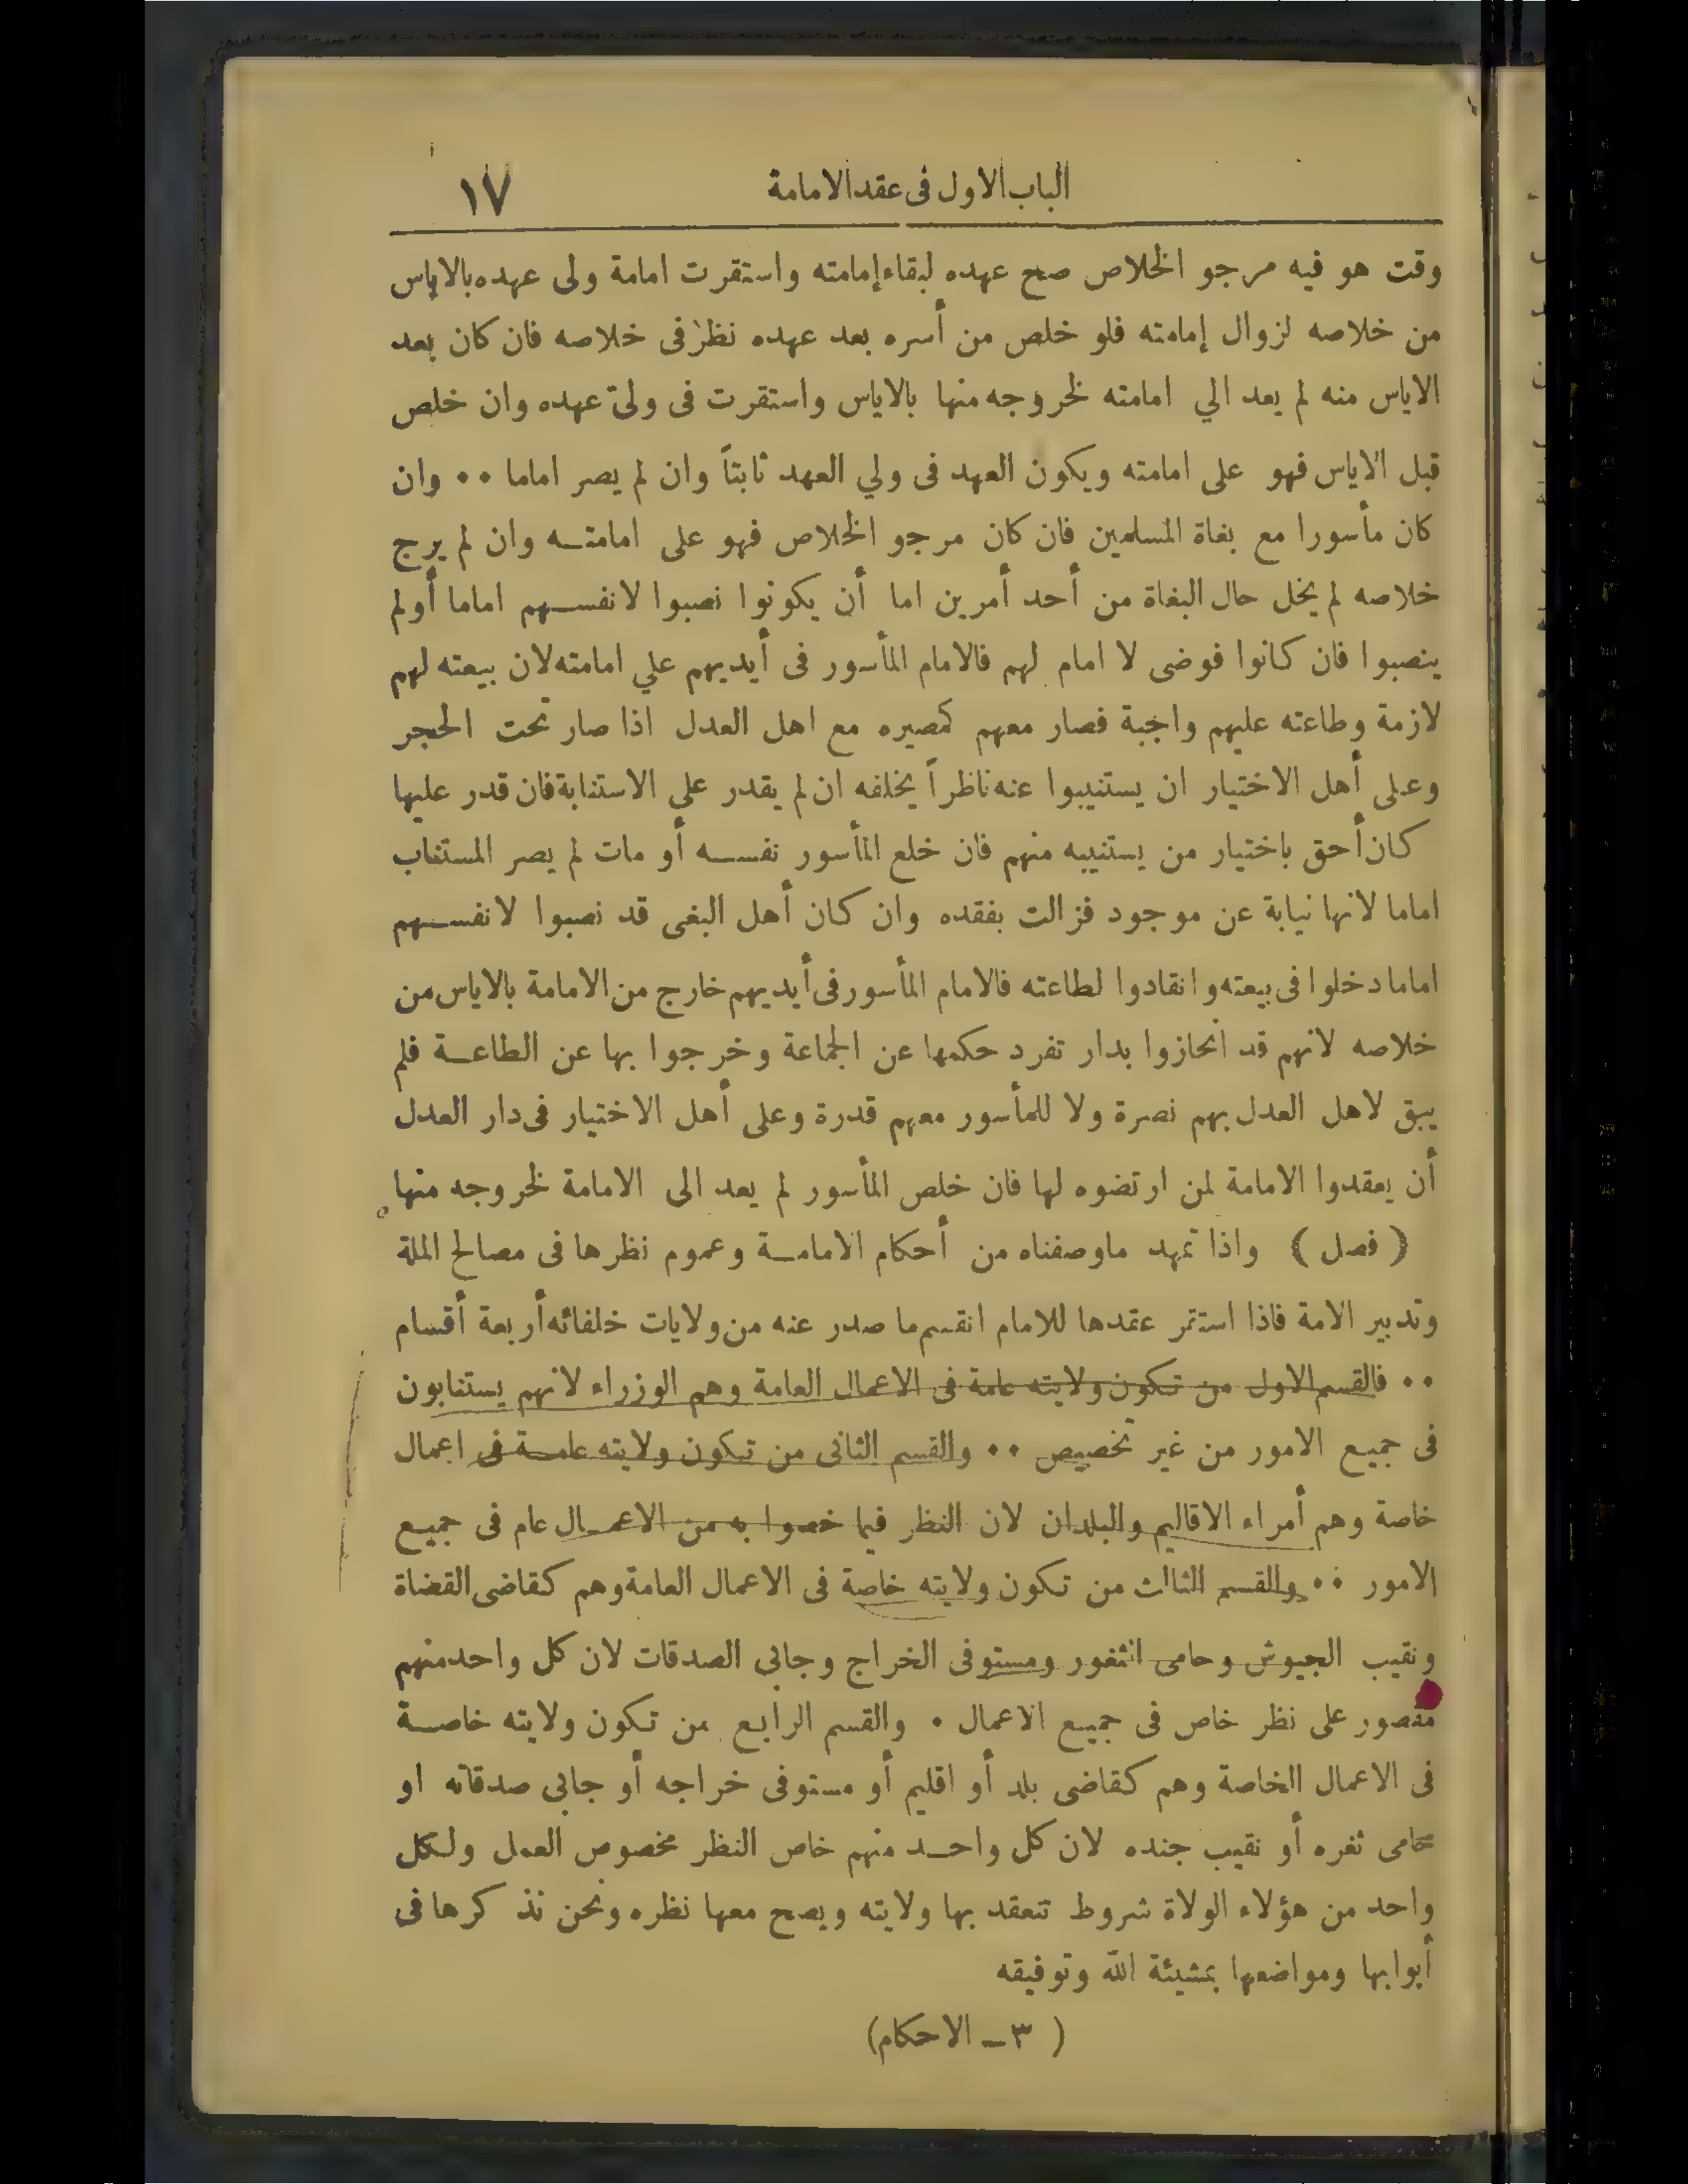 الباب الاول فى عقد الامامة
١٧
وقت هو فيه مرجو الخلاص صح عهده لبقاء إمامته واستقرت امامة ولى عهده بالاياس
من خلاصه لزوال إمامته فلو خلص من أسره بعد عهده نظر فى خلاصه فان كان بعد
الاياس منه لم يعد الي امامته لخروجه منها بالاياس واستقرت فى ولىّ عهده وان خلص
قبل الاياس فهو على امامته ويكون العهد فى ولي العهد ثابتاً وان لم يصر اماما ٠٠ وان
كان مأسورا مع بغاة المسلمين فان كان مرجو الخلاص فهو على امامتـــه وان لم يرج
خلاصه لم يخل حال البغاة من أحد أمرين اما أن يكونوا نصبوا لانفســـهم اماما أولم
ينصبوا فان كانوا فوضى لا امام لهم فالامام المأسور فى أيديهم علي امامته لان بيعته لهم
لازمة وطاعته عليهم واجبة فصار معهم كمصيره مع اهل العدل اذا صار تحت الحجر
وعلى أهل الاختيار ان يستنيبوا عنه ناظراً يخلفه ان لم يقدر علي الاستنابة فان قدر عليها
كان أحق باختيار من يستنيبه منهم فان خلع المأسور نفســـه أو مات لم يصر المستناب
اماما لانها نيابة عن موجود فزالت بفقده وان كان أهل البغى قد نصبوا لانفســـهم
اماما دخلوا فى بيعته وانقادوا لطاعته فالامام المأسور فى أيديهم خارج من الامامة بالاياس من
خلاصه لانهم قد انحازوا بدار تفرد حكمها عن الجماعة وخرجوا بها عن الطاعـــة فلم
يبق لاهل العدل بهم نصرة ولا للمأسور معهم قدرة وعلى أهل الاختيار فى دار العدل
أن يعقدوا الامامة لمن ارتضوه لها فان خلص المأسور لم يعد الى الامامة لخروجه منها
( فصل ) واذا تمهد ماوصفناه من أحكام الامامـــة وعموم نظرها فى مصالح الملة
وتدبير الامة فاذا استقر عقدها للامام انقسم ما صدر عنه من ولايات خلفائه أربعة أقسام
٠٠ فالقسم الاول من تـكون ولايته عامة فى الاعمال العامة وهم الوزراء لانهم يستنابون
فى جميع الامور من غير تخصيص ٠٠ والقسم الثانى من تـكون ولايته عامـــة فى اعمال
خاصة وهم أمراء الاقاليم والبلدان لان النظر فيما خصوا به من الاعمـــال عام فى جميـع
الامور ٠٠ والقسم الثالث من تـكون ولايته خاصة فى الاعمال العامة وهم كـقاضى القضاة
ونقيب الجيوش وحامى الثغور ومستوفى الخراج وجابى الصدقات لان كل واحد منهم
مقصور على نظر خاص فى جميـع الاعمال ٠ والقسم الرابـع من تـكون ولايته خاصـــة
فى الاعمال الخاصة وهم كـقاضى بلد أو اقليم أو مستوفى خراجه أو جابى صدقاته او
حامى ثغره أو نقيب جنده لان كل واحـــد منهم خاص النظر مخصوص العمل ولـكل
واحد من هؤلاء الولاة شروط تنعقد بها ولايته ويصح معها نظره ونحن نذكرها فى
أبوابها ومواضعها بمشيئة الله وتوفيقه
( ٣ ـ الاحكام)